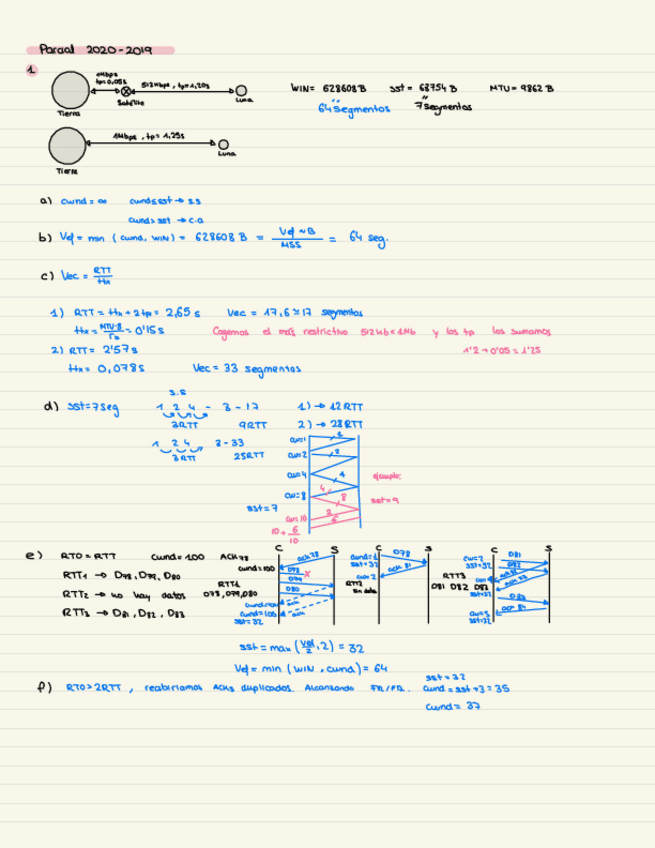 Parcial 2020-2019
1
1Mbps
tp=0,05s
512kbps, tp=1,20s
Tierra
Satélite
Luna
WIN= 628608 B sst= 68754 B MTU= 9862 B
64 segmentos 7 segmentos
1Mbps, tp= 1,25s
Tierra
Luna
a) cwnd = ∞ cwnd≤sst → s.s
cwnd>sst → c.a
b) Vef = min (cwnd, WIN) = 628608 B = Vef ~ B / MSS = 64 seg.
c) Vec = RTT / Htx
1) RTT = Htx + 2tp = 2,65 s Vec = 17,6 ≈ 17 segmentos
Htx = MTU·8 / rs = 0'15s Cogemos el más restrictivo 512kb<1Mb y los tp los sumamos
2) RTT = 2'57s 1'2 + 0'05 = 1'25
Htx = 0,078s Vec = 33 segmentos
s.s
d) sst=7seg 1 2 4 - 8 - 17 1) → 12RTT
3RTT 9RTT 2) → 28RTT
1 2 4 8 - 33
3RTT 25RTT
cw=1
cw=2
cw=4
cw=8
cw=10
sst=7
10 + 6/10
ejemplo:
sst=9
e) RTO = RTT cwnd = 100 ACK78
RTT1 → D78, D79, D80
RTT2 → no hay datos
RTT3 → D81, D82, D83
RTT1
D78, D79, D80
C S
ack 78
cwnd=100
D78
D79
D80
sst=32
C S
D78
ack 81
cwnd=1
sst=32
cw=2
RTT2
sin datos
RTT3
D81 D82 D83
C S
D81
D82
cw=2
sst=32
D83
ack 84
sst=32
sst = max (Vef/2, 2) = 32
Vef = min (WIN, cwnd) = 64
f) RTO > 2RTT, recibiríamos ACKs duplicados. Alcanzando FR/FR.
sst = 32
cwnd = sst + 3 = 35
cwnd = 37